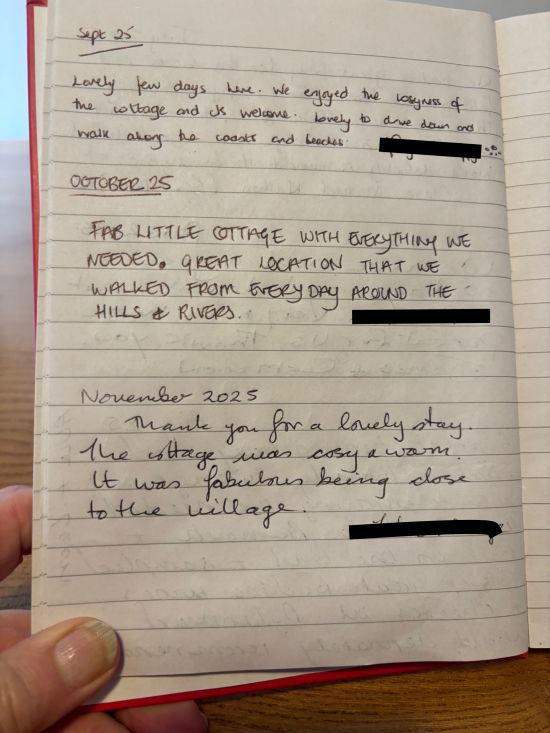 Sept 25
Lovely few days here. We enjoyed the cosyness of
the cottage and its welcome. Lovely to drive down and
walk along the coasts and beaches.
OCTOBER 25
FAB LITTLE COTTAGE WITH EVERYTHING WE
NEEDED. GREAT LOCATION THAT WE
WALKED FROM EVERY DAY AROUND THE
HILLS & RIVERS.
November 2025
Thank you for a lovely stay.
The cottage was cosy & warm.
It was fabulous being close
to the village.